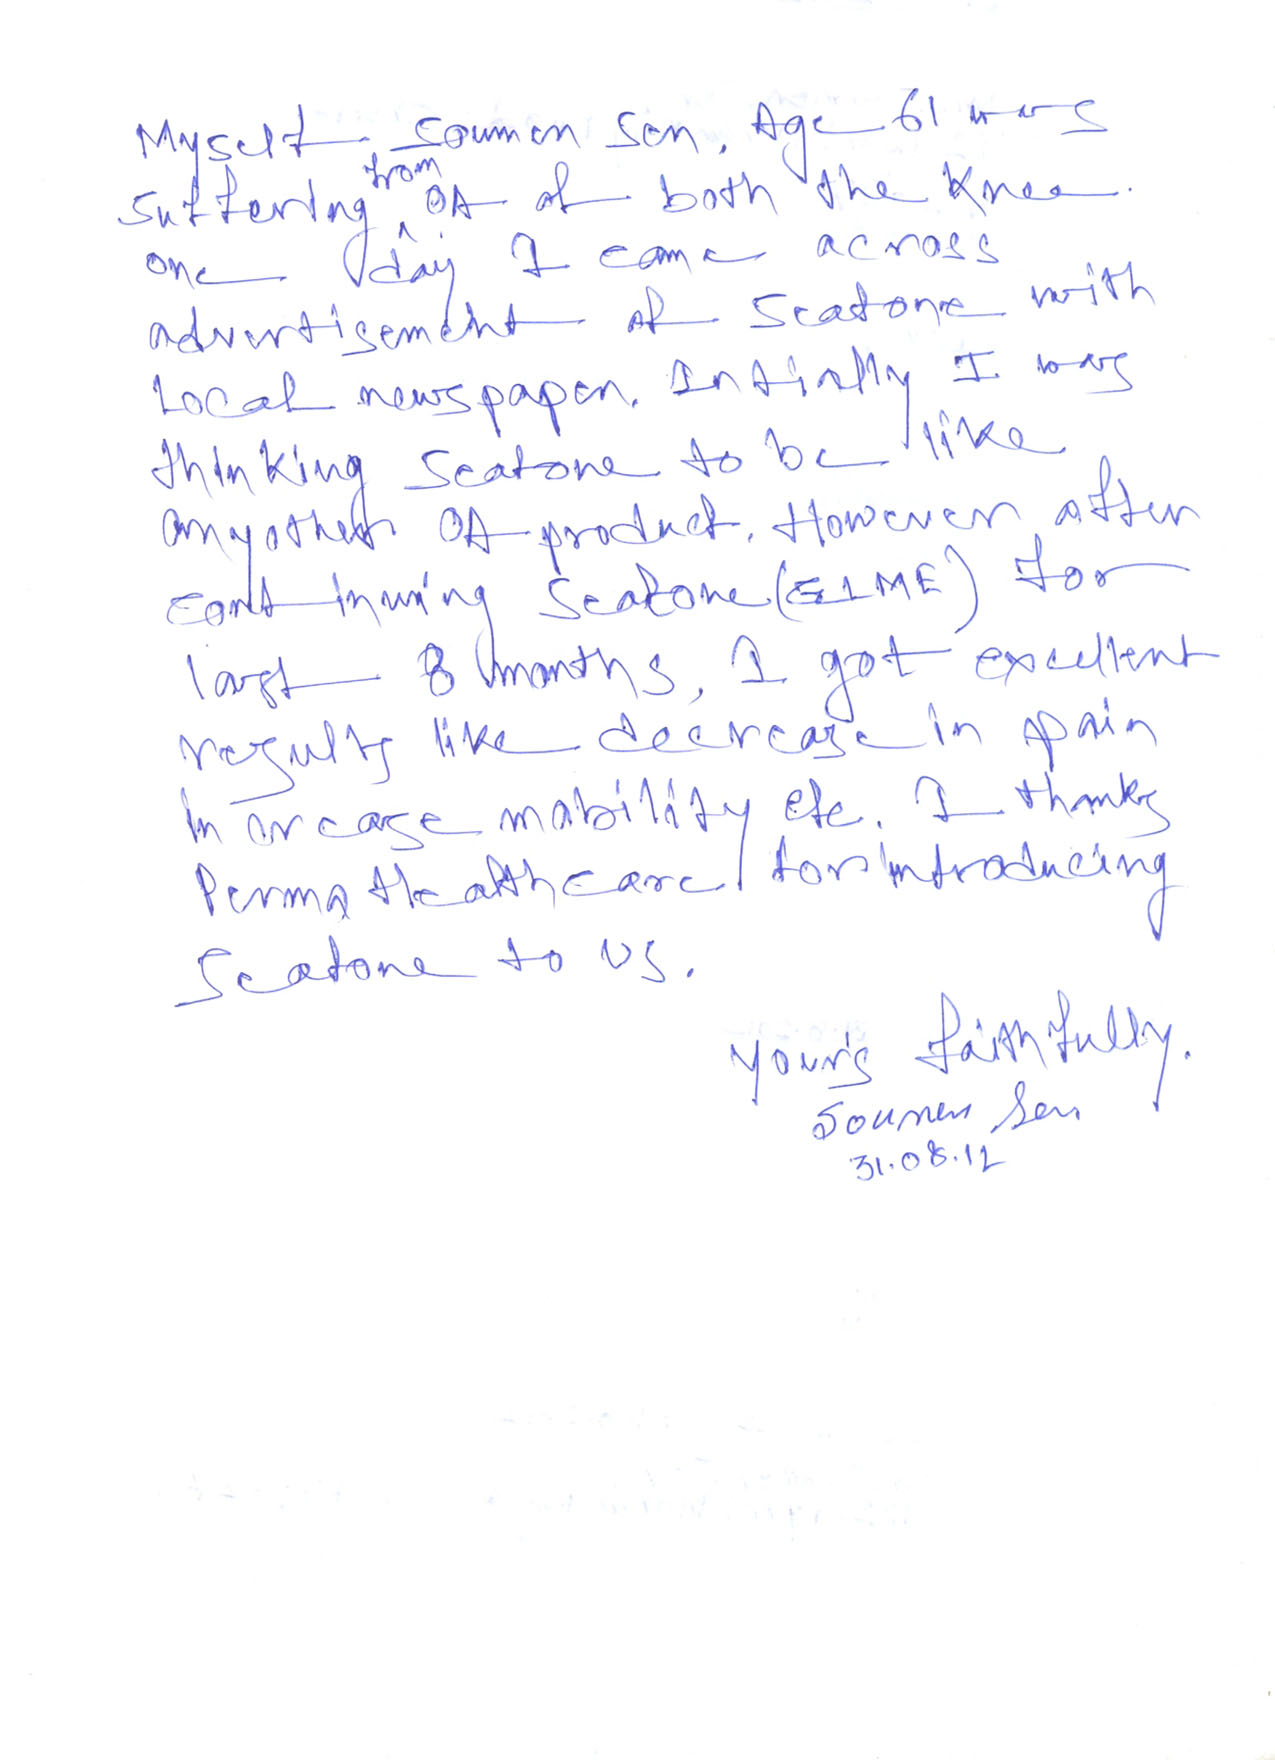 Myself Soumen Sen, Age 61 was
suffering from OA of both the Knee.
one day I came across
advertisement of Seatone with
Local newspaper. Intially I was
thinking Seatone to be like
anyother OA product. However after
continuing Seatone (G1ME) for
last 8 months, I got excellent
results like decrease in pain
increase mobility etc. I thanks
Perma Healthcare for introducing
Seatone to us.
Your's faithfully.
Soumen Sen
31.08.12